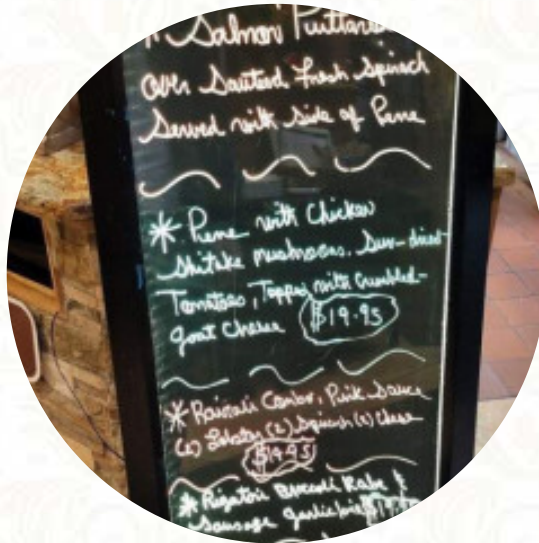 Salmon Puttan
Over Sauteed Fresh Spinach
Served with Side of Pene
* Pene with Chicken
Shitake mushrooms, Sun-dried
Tomatoes, Topped with Crumbled
goat Cheese $19.95
* Ravioli Combo, Pink Sauce
(2) Lobster (2) Spinach (2) Cheese
$19.95
* Rigatoni Broccoli Rabe &
Sausage garlic